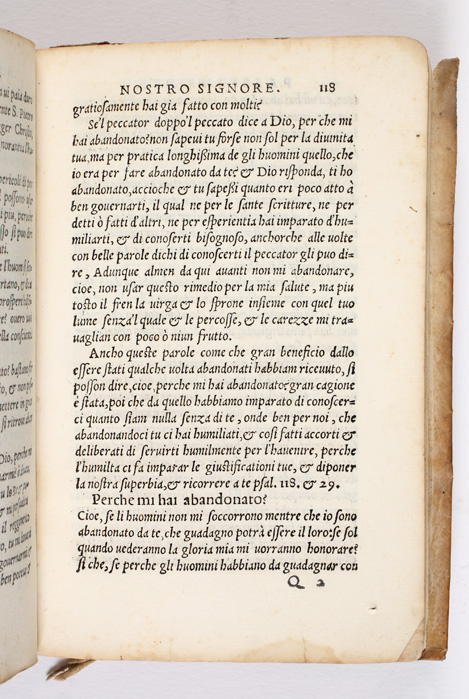 NOSTRO SIGNORE. 118
gratiosamente hai gia fatto con molti?
Se'l peccator doppo'l peccato dice a Dio, per che mi
hai abandonato? non sapeui tu forse non sol per la diuinita
tua, ma per pratica longhißima de gli huomini quello, che
io era per fare abandonato da te? & Dio risponda, ti ho
abandonato, accioche & tu sapeßi quanto eri poco atto à
ben gouernarti, il qual ne per le sante scritture, ne per
detti ò fatti d'altri, ne per esperientia hai imparato d'hu-
miliarti, & di conoserti bisognoso, anchorche alle uolte
con belle parole dichi di conoscerti il peccator gli puo di-
re, Adunque almen da qui auanti non mi abandonare,
cioe, non usar questo rimedio per la mia salute, ma piu
tosto il fren la uirga & lo sprone insieme con quel tuo
lume senza'l quale & le percosse, & le carezze mi tra-
uaglian con poco ò niun frutto.
Ancho queste parole come che gran beneficio dallo
essere stati qualche uolta abandonati habbiam riceuuto, si
posson dire, cioe, perche mi hai abandonato? gran cagione
è stata, poi che da quello habbiamo imparato di conoscer-
ci quanto siam nulla senza di te, onde ben per noi, che
abandonandoci tu ci hai humiliati, & cosi fatti accorti &
deliberati di seruirti humilmente per l'hauenire, perche
l'humilta ci fa imparar le giustificationi tue, & diponer
la nostra superbia, & ricorrere a te psal. 118. & 29.
Perche mi hai abandonato?
Cioe, se li huomini non mi soccorrono mentre che io sono
abandonato da te, che guadagno potrà essere il loro? se sol
quando uederanno la gloria mia mi uorranno honorare?
si che, se perche gli huomini habbiano da guadagnar con
Q 2